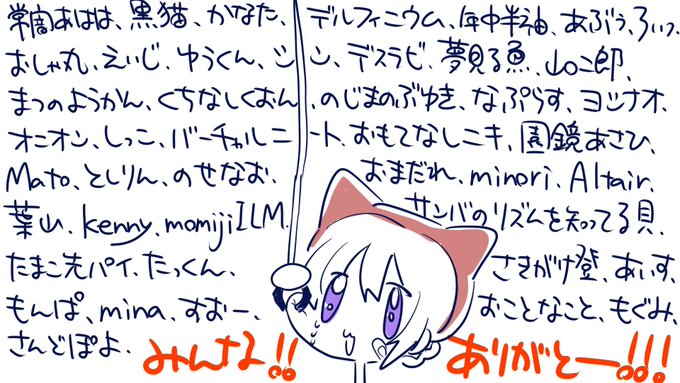 常闇あはは、黒猫、かなた、デルフィニウム、年中半袖、あぶぅ、ろいっ、
おしゃ丸、えいじ、ゆうくん、シン、デスラビ、夢見る魚、山口二郎、
まつのようかん、くちなしくおん、のじまのぶゆき、なぷらす、ヨシナオ、
オニオン、しっこ、バーチャルニート、おもてなしニキ、園鏡あさひ、
Mato、としりん、のせなお、おまだれ、minori、Altair、
葉山、kenny、momijiILM、サンバのリズムを知ってる貝、
たまこ先パイ、たっくん、さきがけ登、あいす、
もんぱ、mina、すおー、おことなこと、もぐみ、
さんどぽよ、みんな!! ありがとー!!!